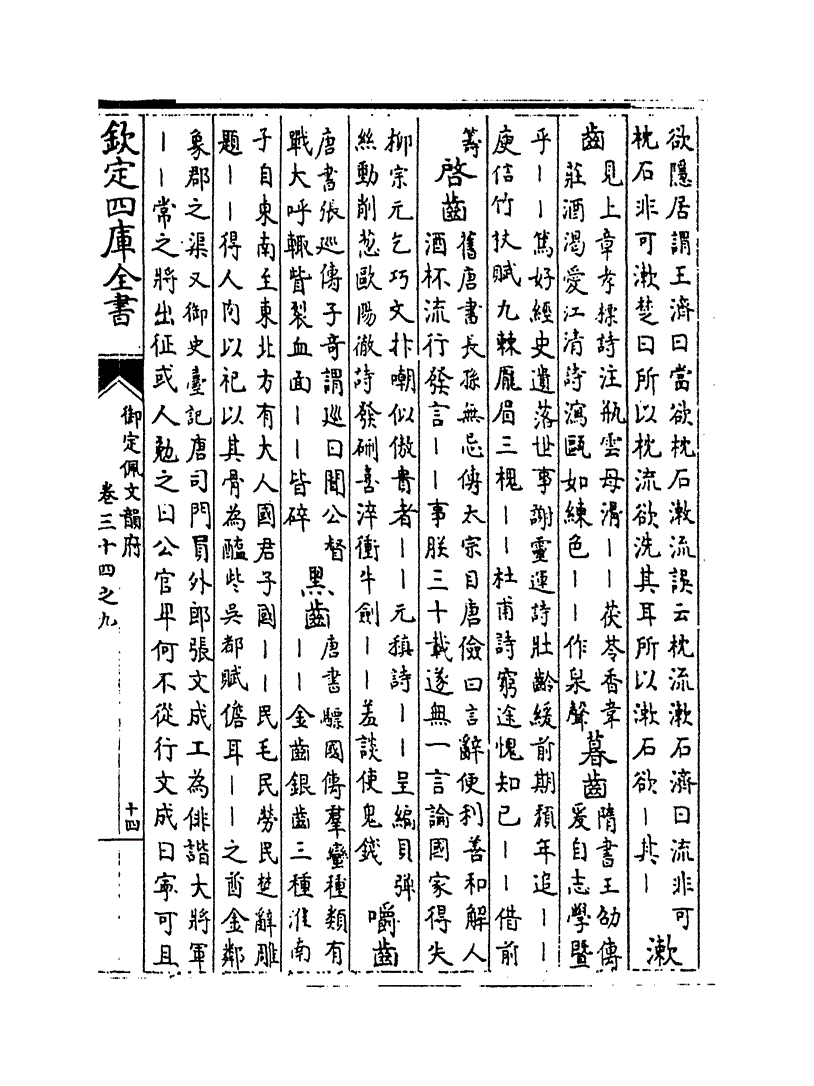 欲隱居謂王濟曰當欲枕石漱流誤云枕流漱石濟曰流非可
枕石非可漱楚曰所以枕流欲洗其耳所以漱石欲｜其｜
漱
齒
見上章孝標詩注瓶雲母滑｜｜茯苓香韋
莊酒渴愛江清詩瀉甌如練色｜｜作泉聲
暮齒
隋書王劭傳
爰自志學暨
乎｜｜篤好經史遺落世事謝靈運詩壯齡緩前期頹年追｜｜
庾信竹杖賦九棘厖眉三槐｜｜杜甫詩窮途愧知己｜｜借前
籌
啓齒
舊唐書長孫無忌傳太宗目唐儉曰言辭便利善和解人
酒杯流行發言｜｜事朕三十載遂無一言論國家得失
柳宗元乞巧文抃嘲似傲貴者｜｜元稹詩｜｜呈編貝彈
絲動削葱歐陽徹詩發硎喜淬衝牛劍｜｜羞談使鬼錢
嚼齒
唐書張巡傳子奇謂巡曰聞公督
戰大呼輒眥裂血面｜｜皆碎
黑齒
唐書驃國傳羣蠻種類有
｜｜金齒銀齒三種淮南
子自東南至東北方有大人國君子國｜｜民毛民勞民楚辭雕
題｜｜得人肉以祀以其骨為醢些吳都賦儋耳｜｜之酋金鄰
象郡之渠又御史臺記唐司門員外郎張文成工為俳諧大將軍
｜｜常之將出征或人勉之曰公官卑何不從行文成曰寧可且
欽定四庫全書
御定佩文韻府
卷三十四之九
十四